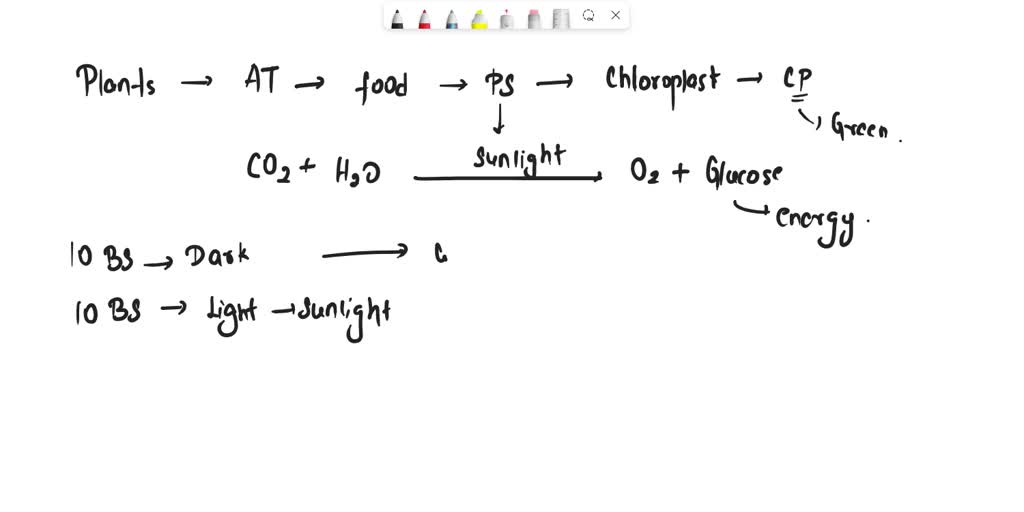 Plants → AT → food → PS → Chloroplast → CP
↓
Green.
Sunlight
CO2 + H2O → O2 + Glucose
energy.
10 BS → Dark → C
10 BS → Light → Sunlight